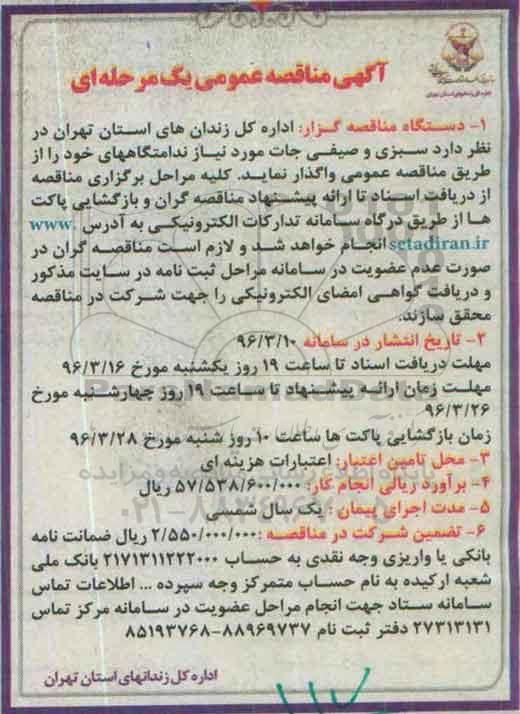 آگهی مناقصه عمومی یک مرحله ای
۱- دستگاه مناقصه گزار: اداره کل زندان های استان تهران در
نظر دارد سبزی و صیفی جات مورد نیاز ندامتگاههای خود را از
طریق مناقصه عمومی واگذار نماید. کلیه مراحل برگزاری مناقصه
از دریافت اسناد تا ارائه پیشنهاد مناقصه گران و بازگشایی پاکت
ها از طریق درگاه سامانه تدارکات الکترونیکی به آدرس www.
setadiran.ir انجام خواهد شد و لازم است مناقصه گران در
صورت عدم عضویت در سامانه مراحل ثبت نامه در سایت مذکور
و دریافت گواهی امضای الکترونیکی را جهت شرکت در مناقصه
محقق سازند.
۲- تاریخ انتشار در سامانه ۹۶/۳/۱۰
مهلت دریافت اسناد تا ساعت ۱۹ روز یکشنبه مورخ ۹۶/۳/۱۶
مهلت زمان ارائه پیشنهاد تا ساعت ۱۹ روز چهارشنبه مورخ
۹۶/۳/۲۶
زمان بازگشایی پاکت ها ساعت ۱۰ روز شنبه مورخ ۹۶/۳/۲۸
۳- محل تامین اعتبار: اعتبارات هزینه ای
۴- برآورد ریالی انجام کار: ۵۷/۵۳۸/۶۰۰/۰۰۰ ریال
۵- مدت اجرای پیمان : یک سال شمسی
۶- تضمین شرکت در مناقصه :۲/۵۵۰/۰۰۰/۰۰۰ ریال ضمانت نامه
بانکی یا واریزی وجه نقدی به حساب ۲۱۷۱۳۱۱۲۲۲۰۰۰ بانک ملی
شعبه ارکیده به نام حساب متمرکز وجه سپرده ... اطلاعات تماس
سامانه ستاد جهت انجام مراحل عضویت در سامانه مرکز تماس
۲۷۳۱۳۱۳۱ دفتر ثبت نام ۸۸۹۶۹۷۳۷-۸۵۱۹۳۷۶۸
اداره کل زندانهای استان تهران